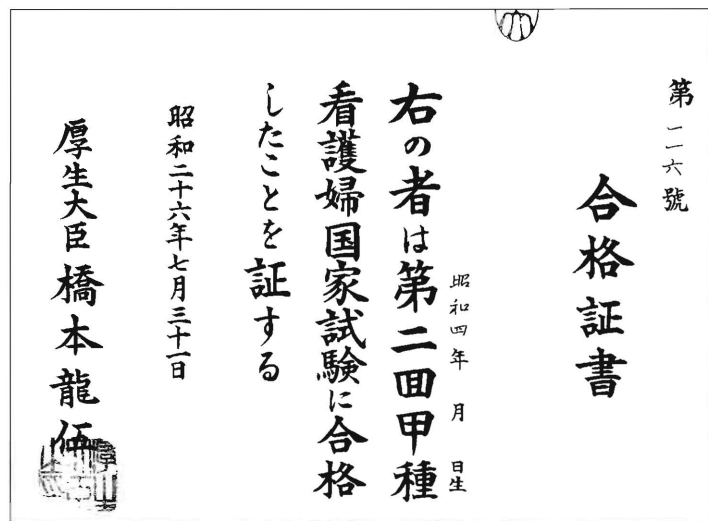 第一一六號
合格証書
昭和四年 月 日生
右の者は第二回甲種
看護婦国家試験に合格
したことを証する
昭和二十六年七月三十一日
厚生大臣 橋本龍伍